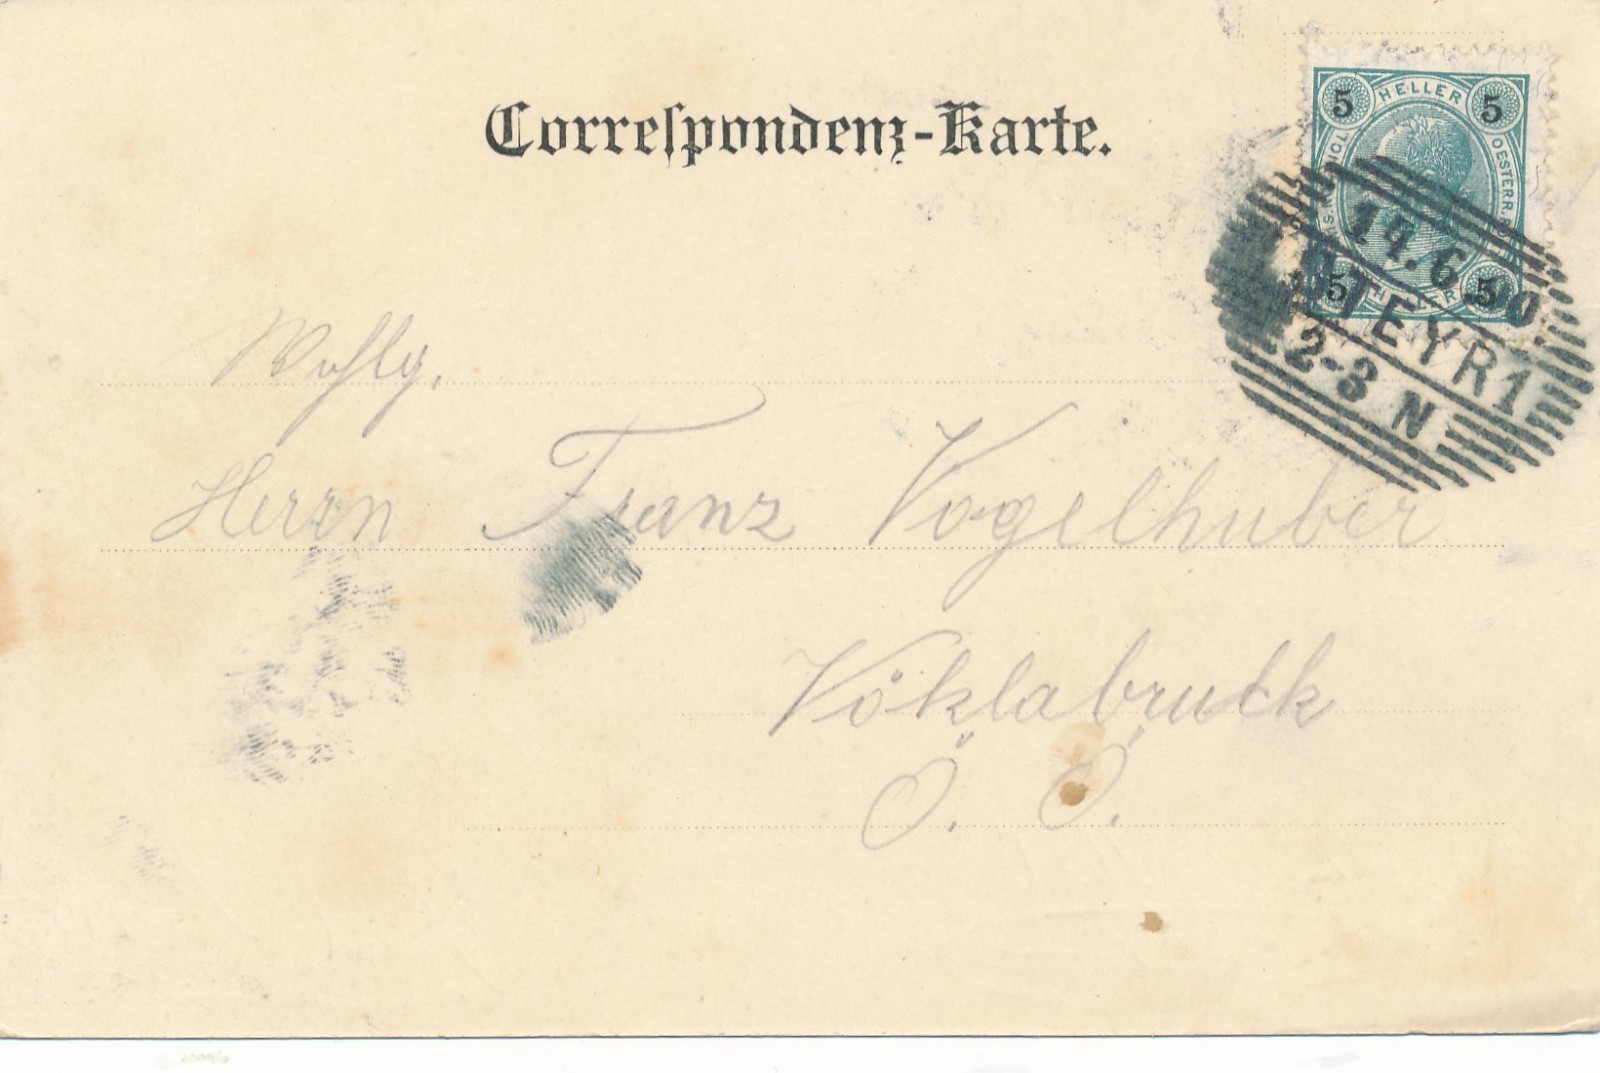 Correſpondenz-Karte.
5 HELLER 5
OESTERR.
5 HELLER 5
14.6.00
STEYR 1
2-3 N
Wohlg.
Herrn Franz Vogelhuber
Vöklabruck
Ö. Ö.